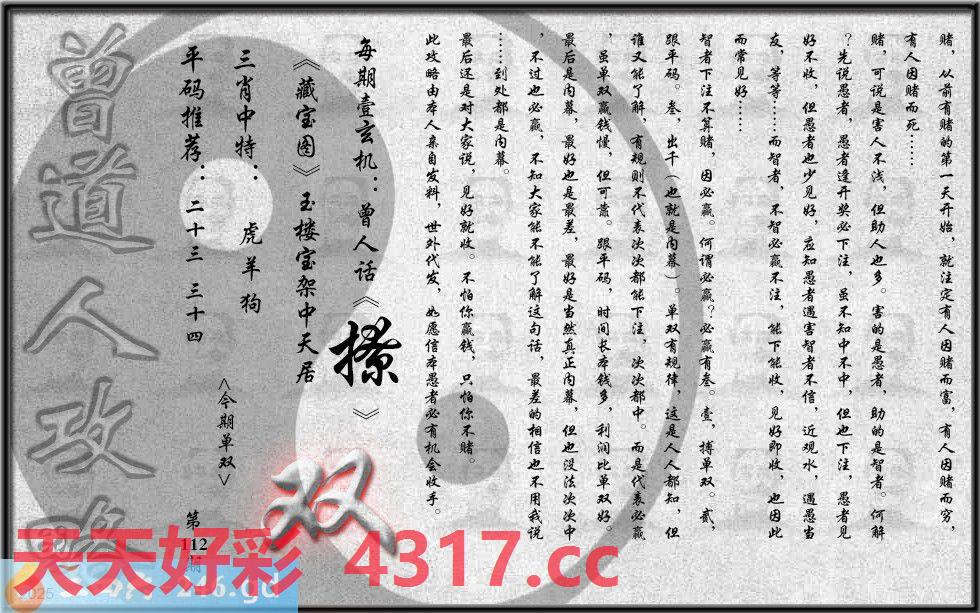 赌，从前有赌的第一天开始，就注定有人因赌而富，有人因赌而穷，
有人因赌而死……
赌，可说是害人不浅，但助人也多。害的是愚者，助的是智者。何解
？先说愚者，愚者逢开奖必下注，虽不知中不中，但也下注，愚者见
好不收，但愚者也少见好，应知愚者遇害智者不信，近观水，遇愚当
友，等等……而智者，不智必赢不注，能下能收，见好即收，也因此
而常见好……
智者下注不算赌，因必赢。何谓必赢？必赢有叁。壹，搏单双。贰，
跟平码。叁，出千（也就是内幕）。单双有规律，这是人人都知，但
谁又能了解，有规则不代表次次都能下注，次次都中。而是代表必赢
，虽单双赢钱慢，但可靠。跟平码，时间长本钱多，利润比单双好。
最后是内幕，最好也是最差，最好是当然真正内幕，但也没法次次中
，不过也必赢，不知大家能不能了解这句话，最差的相信也不用我说
……到处都是内幕。
最后还是对大家说，见好就收。不怕你赢钱，只怕你不赌。
此攻略由本人亲自发料，世外代发，如愿信本愚者必有机会收手。
每期壹玄机：曾人话《撩》
《藏宝图》玉楼宝架中天居
三肖中特：虎羊狗
平码推荐：二十三 三十四
<今期单双>
双
第112期
曾道人攻略
天天好彩 4317.cc
2025